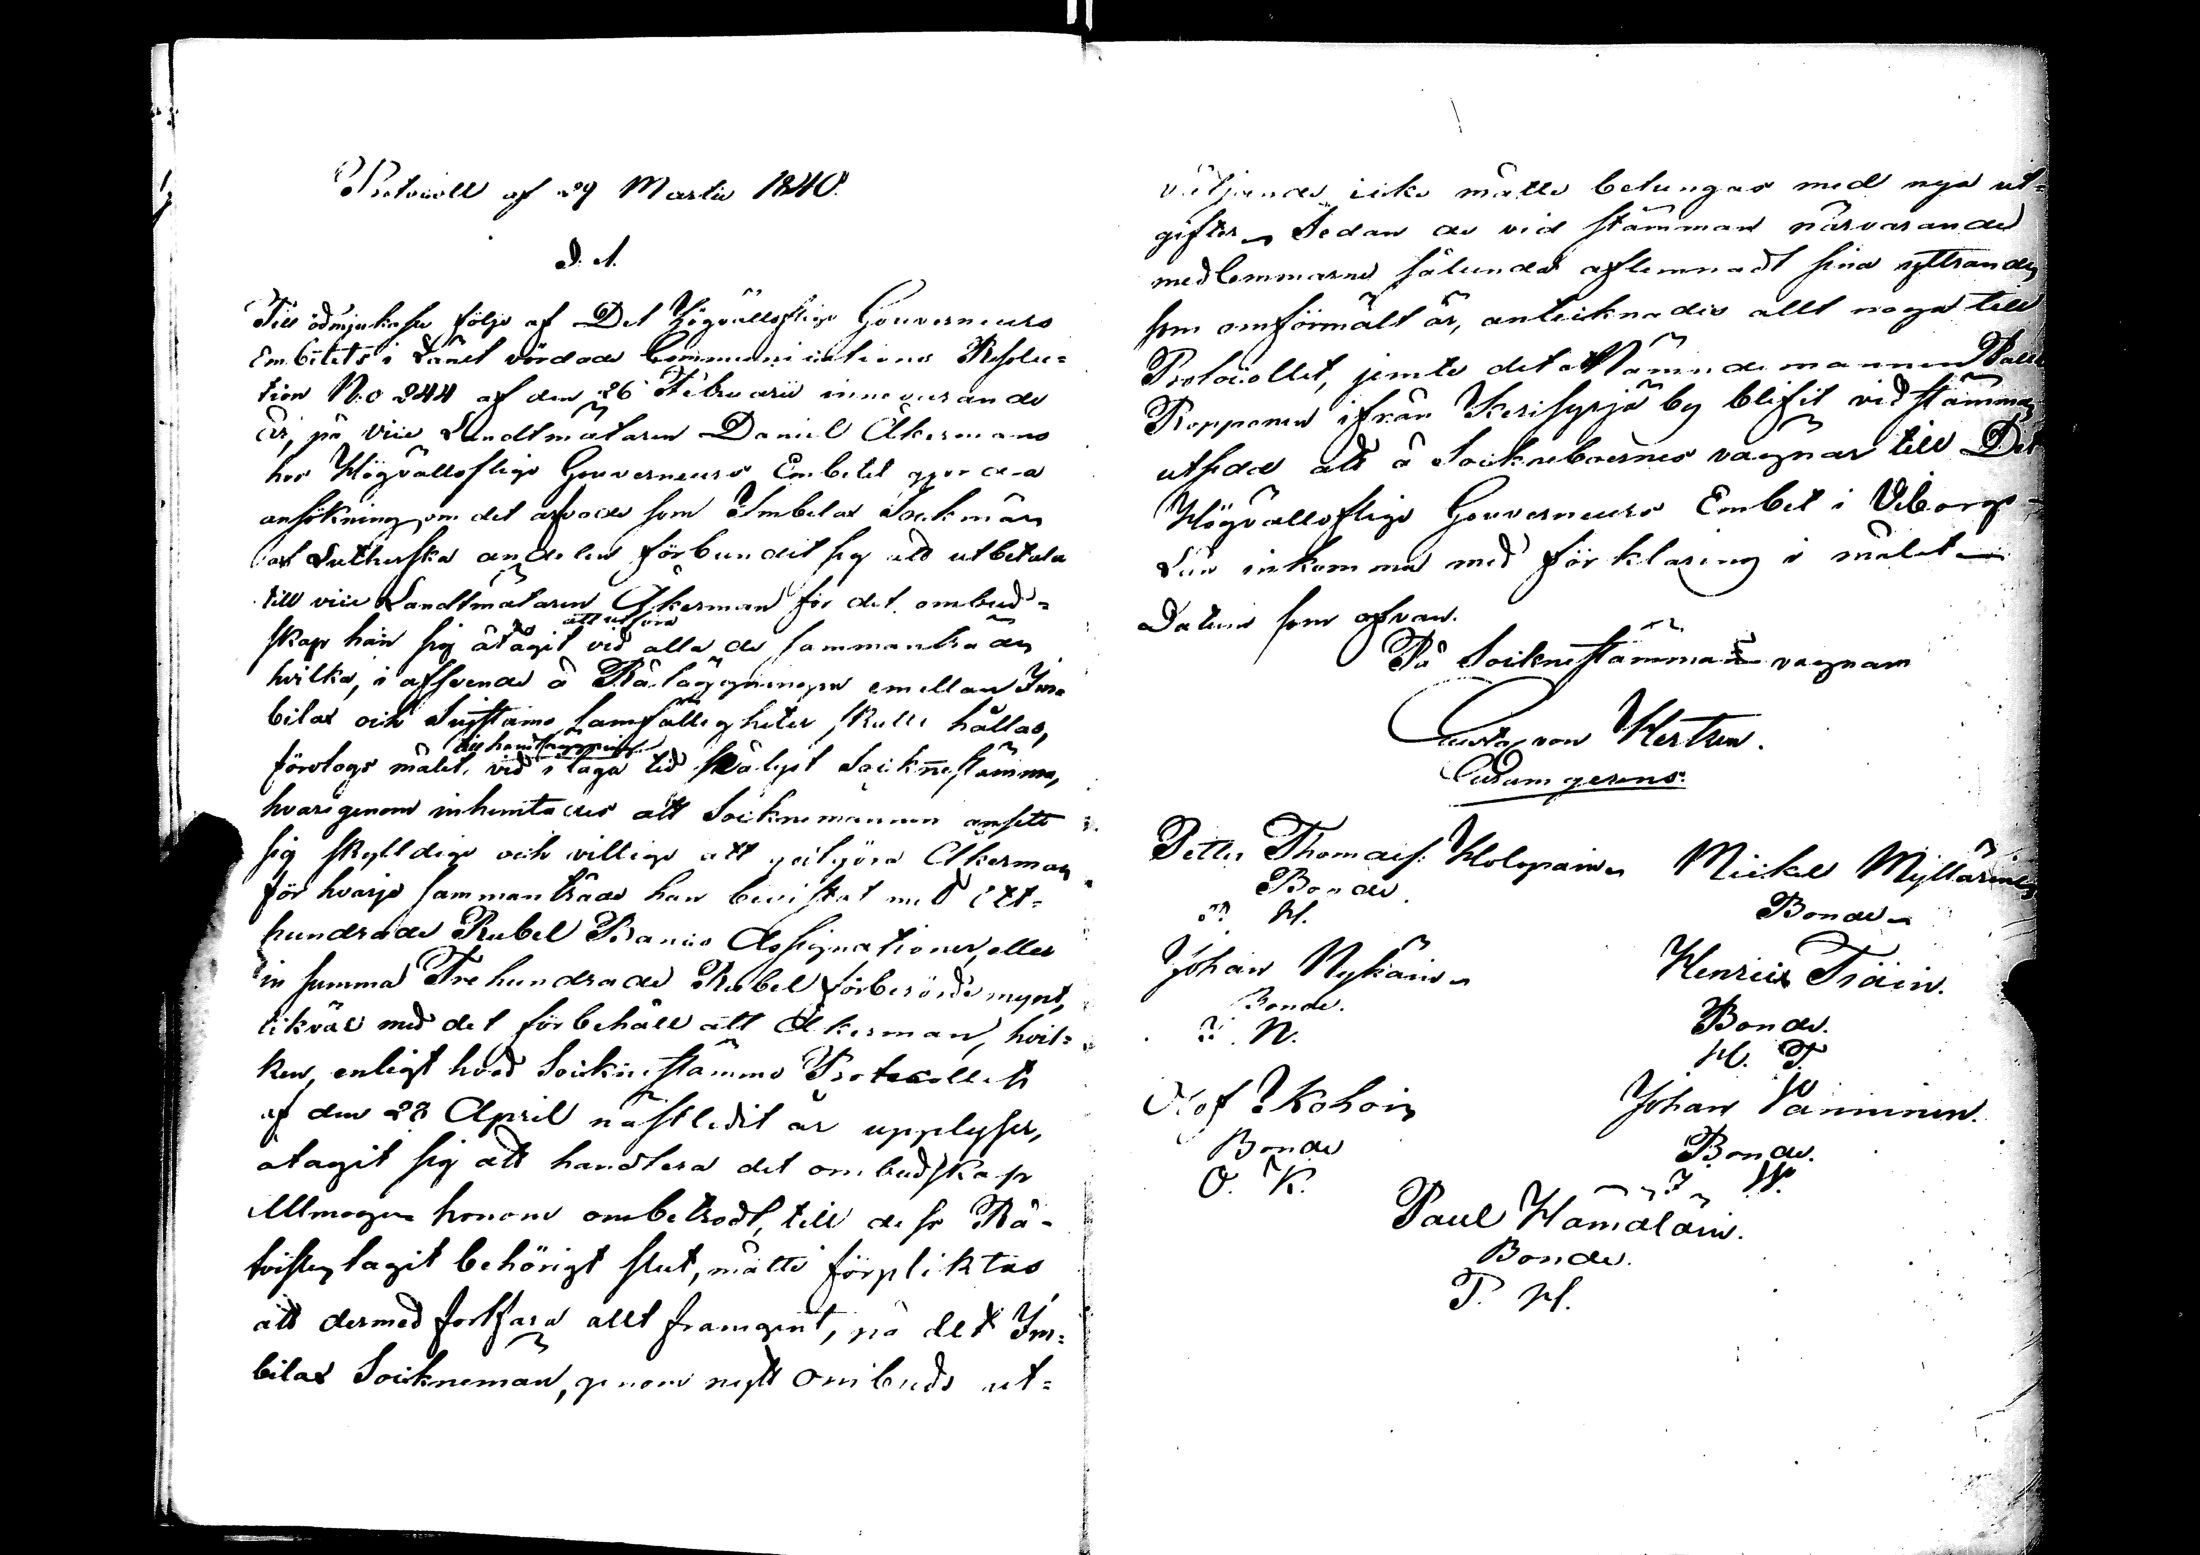 Protocoll af 29 Martii 1840.
S. D.
Till ödmjukaste följe af Det Högvällofliga Gouverneurs
Embetets i Länet vördade Communications Resolu=
tion N:o 244 af den 26 Februarii innevarande
år, på vice Landtmätaren Daniel Åkermans
hos Högvällofliga Gouverneurs Embetet gjorda
ansökning om det arfvode som Imbilax Sockmän
af Lutherska andelen förbundit sig att utbetala
till vice Landtmätaren Åkerman för det ombud=
skap han sig åtagit att utföra vid alla de sammanträden
hvilka, i afseende å Rå läggningen emellan Im
bilax och Suistamo Samfälligheter skulle hållas,
företogs målet, vid i laga tid pålyst Sockne stämma,
hvarigenom inhemtades att Socknemännen ansett
sig skylldige och villige att godgöra Åkerman
för hvarje sammanträde han bevistat med Ett=
hundrade Rubel Banco Assignationer, eller
in summa Trehundrade Rubel förberörde mynt,
likväl med det förbehåll att Åkerman, hvil=
ken, enligt hvad Sockne stämmo Protocollet
af den 28 April nästledit år upplyser,
åtagit sig att handtera det ombudskap
Allmogen honom ombetrodt, till dess Rå-
tvisten tagit behörigt slut, måtte förpliktas
att dermed fortfara allt framgent, på det Im=
bilax Sockneman, genom nytt ombuds ut=
väljande icke måtte betungas med nya ut=
gifter. Sedan de vid stämman närvarande
medlemmarne sålunda aflemnadt sina yttranden
som omförmält är, antecknades allt noga till
Protocollet, jemte det att Nämndemannen
Ropponen ifrån Kerisyrjä by blifit vid stämman
utsedd att å Socknebornes vägnar till Det
Högvällofliga Gouverneurs Embet i Viborgs
Län inkomma med förklaring i målet
Datum som ofvan.
På Sockne stämmans vägnar
Gustaf von Hertzen.
Curam gerens.
Petter Thomass. Holopainen Mickel Myllärinen
Bonde. Bonde
H.
Johan Nykänen Henrich Tröin.
Bonde. Bonde.
N. H. T.
Olof Kohoin Johan Wänninen.
Bonde Bonde.
O. K. J W.
Paul Hämäläin.
Bonde.
P. H.